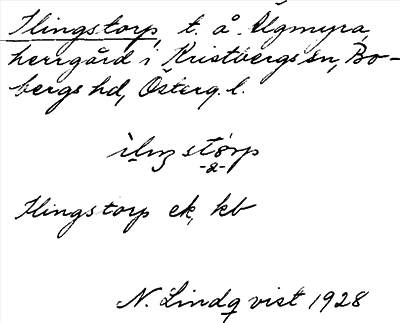 Ilingstorp t. å. Ugmyra,
herrgård i Kristbergs sn, Bo-
bergs hd, Österg. l.
Ilingstorp ek, kb
N. Lindqvist 1928